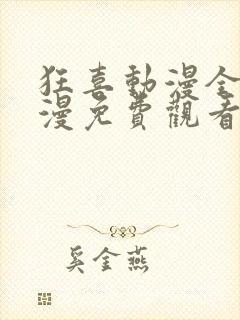 狂喜動漫全
漫免費觀看
奚金燕